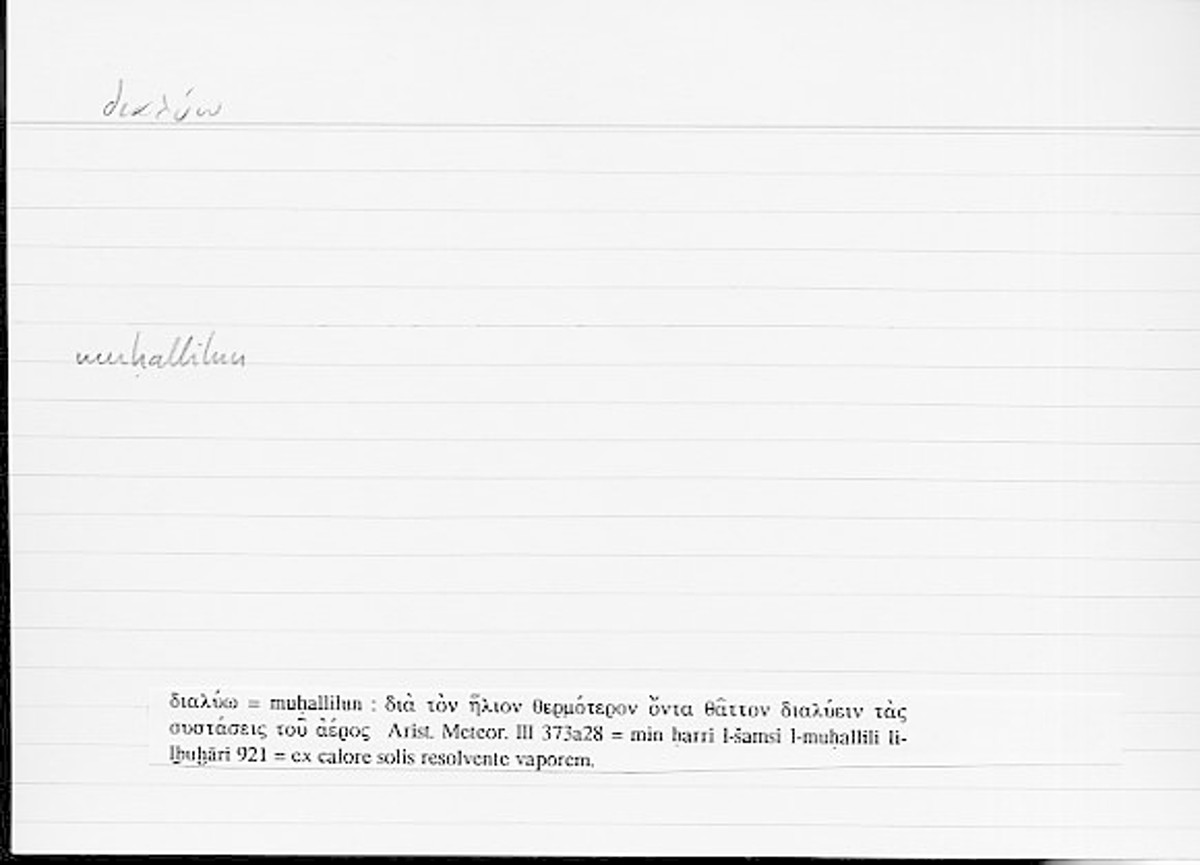 διαλύω
muḥallilun
διαλύω = muḥallilun : διὰ τὸν ἥλιον θερμότερον ὄντα θᾶττον διαλύειν τὰς
συστάσεις τοῦ ἀέρος Arist. Meteor. III 373a28 = min ḥarri l-šamsi l-muḥallili li-
lbuḫāri 921 = ex calore solis resolvente vaporem.